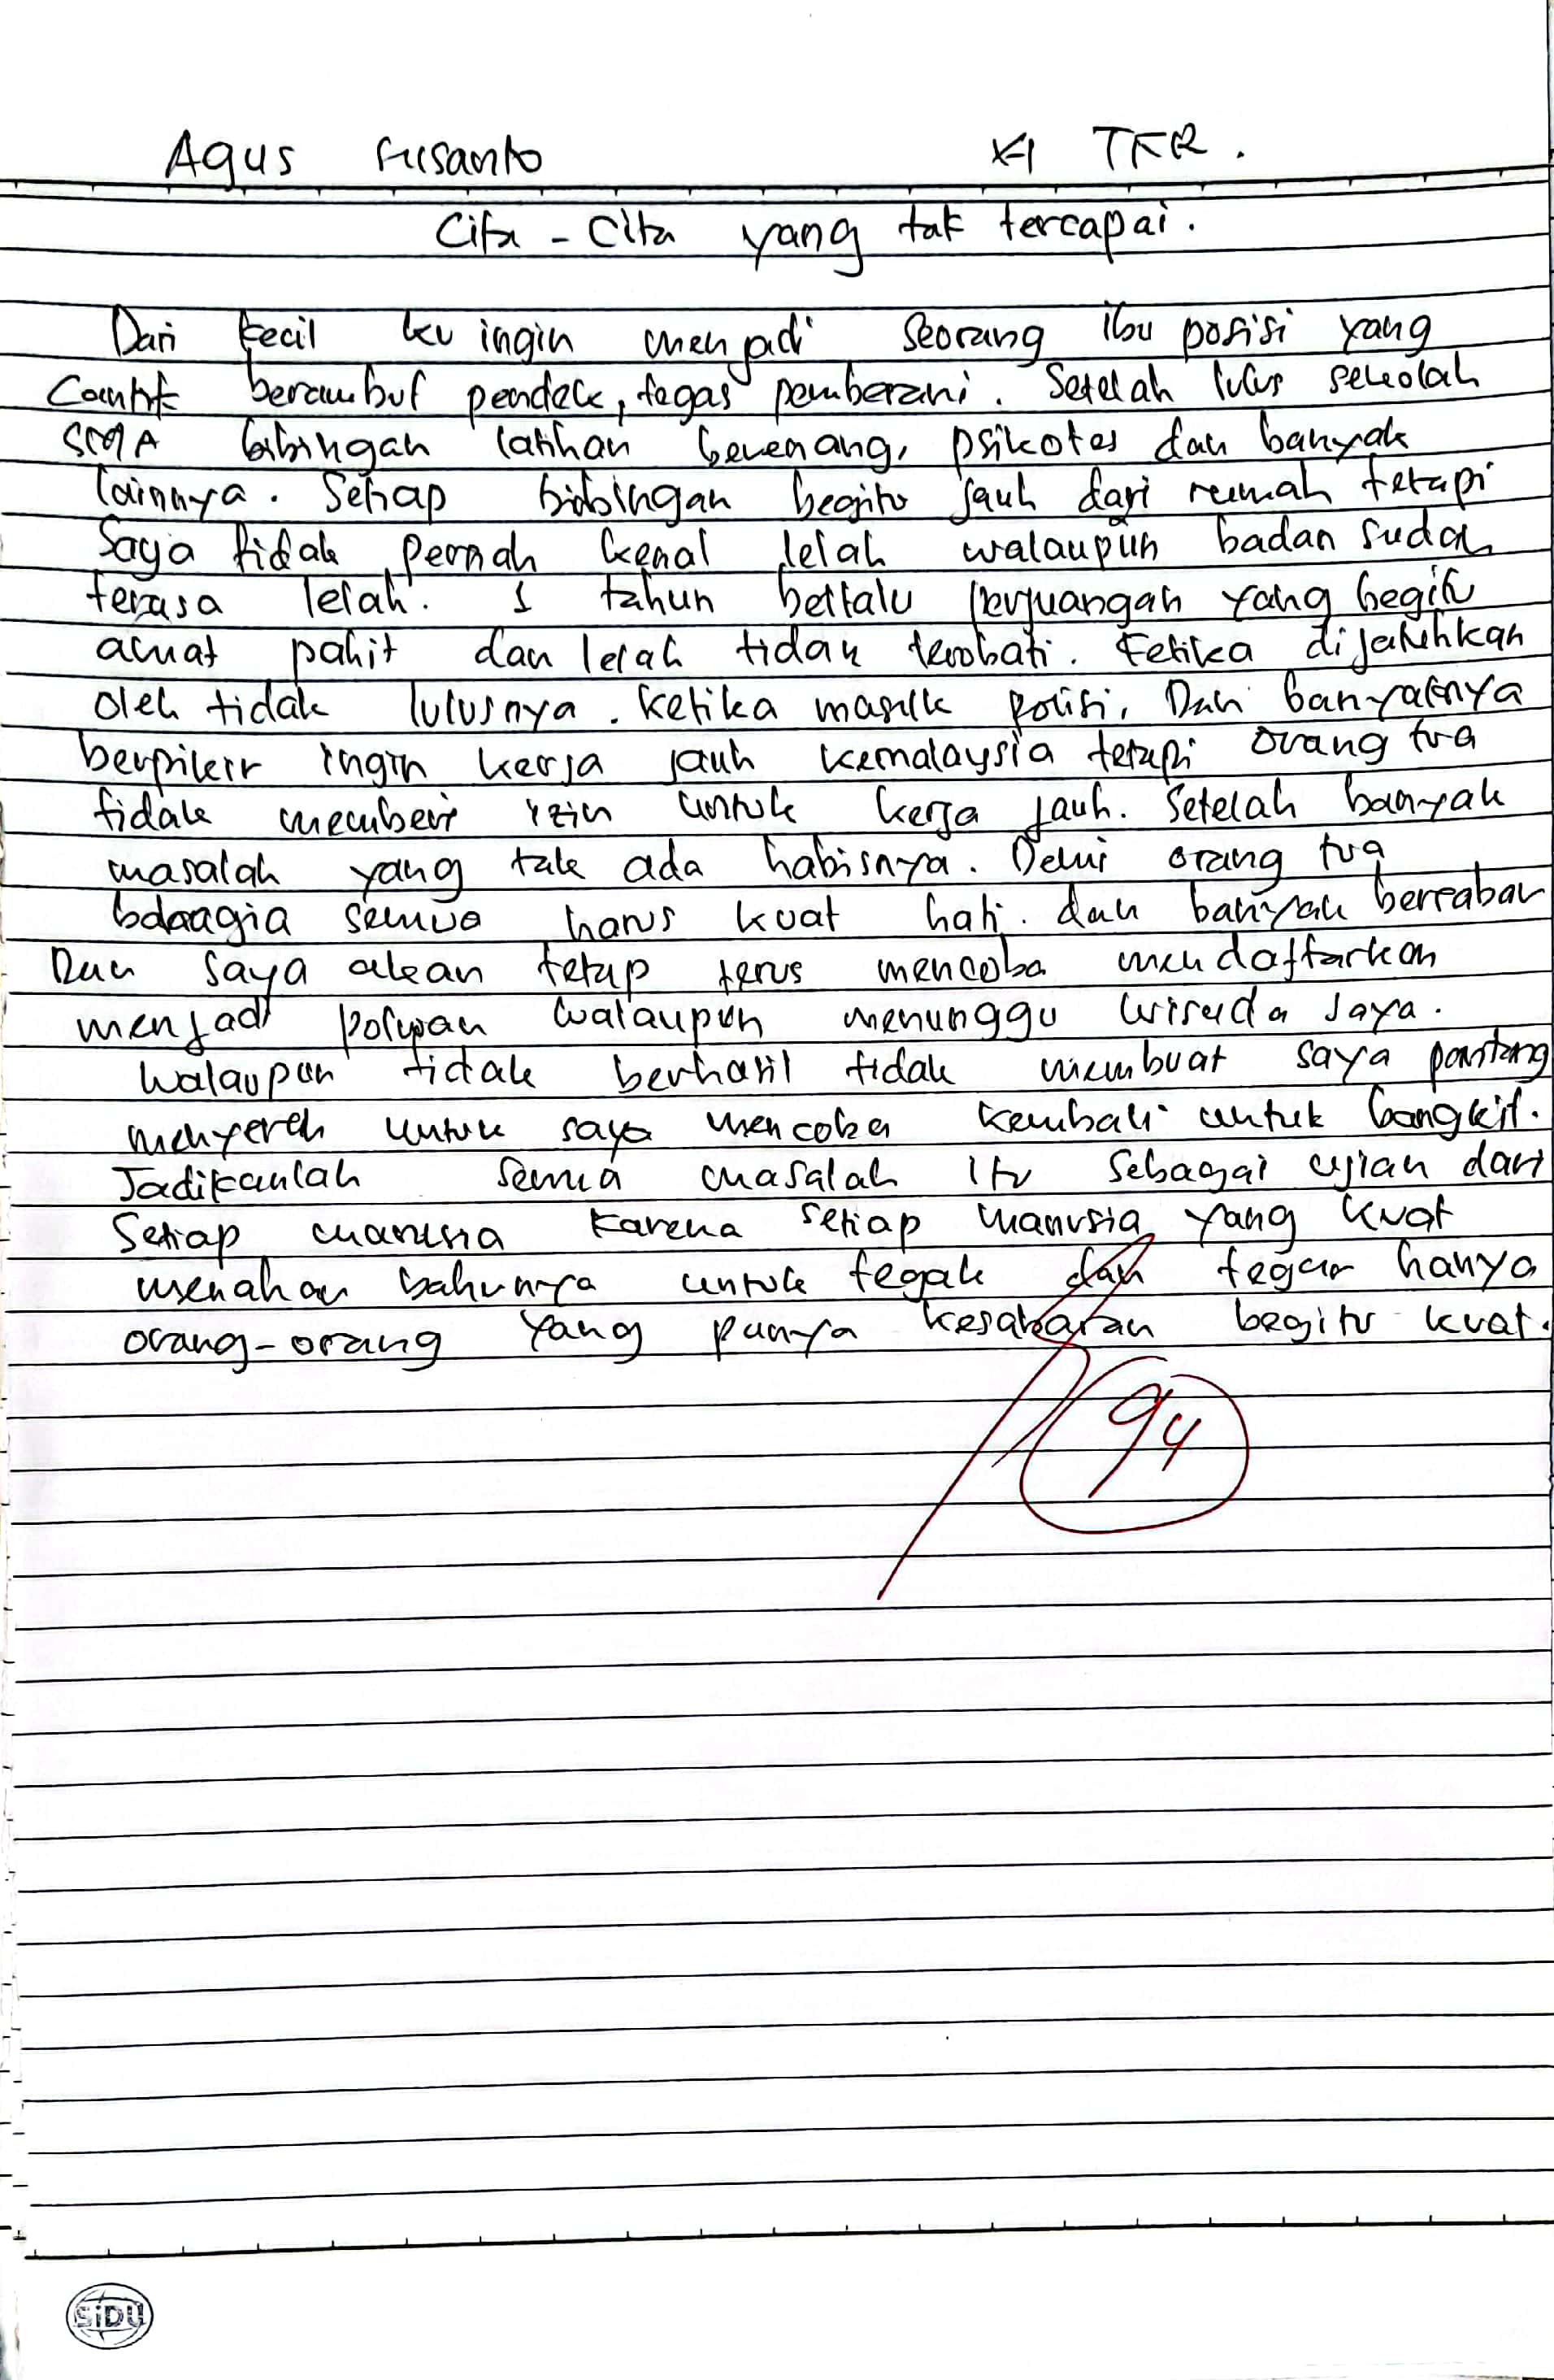 Agus Susanto XI TKR.
Cita - Cita yang tak tercapai.
Dari kecil ku ingin menjadi seorang ibu posisi yang
Cantik berambut pendek, tegas pemberani. Setelah lulus sekolah
SMA bibingan latihan berenang, psikotes dan banyak
lainnya. Setiap bibingan begitu jauh dari rumah tetapi
Saya tidak pernah kenal lelah walaupun badan sudah
terasa lelah. 1 tahun berlalu perjuangan yang begitu
amat pahit dan lelah tidak terobati. Ketika dijatuhkan
oleh tidak lulusnya. Ketika masuk polisi, Dan banyaknya
berpikir ingin kerja jauh kemalaysia tetapi orang tua
tidak memberi izin untuk kerja jauh. Setelah banyak
masalah yang tak ada habisnya. Demi orang tua
bahagia semua harus kuat hati. dan banyak bersabar
Dan saya akan tetap terus mencoba mendaftarkan
menjadi polwan walaupun menunggu wisuda saya.
Walaupun tidak berhasil tidak membuat saya pantang
menyerah untuk saya mencoba kembali untuk bangkit.
Jadikanlah semua masalah itu sebagai ujian dari
Setiap manusia karena setiap manusia yang kuat
menahan bahunya untuk tegak dan tegar hanya
orang-orang yang punya kesabaran begitu kuat.
94
SiDU